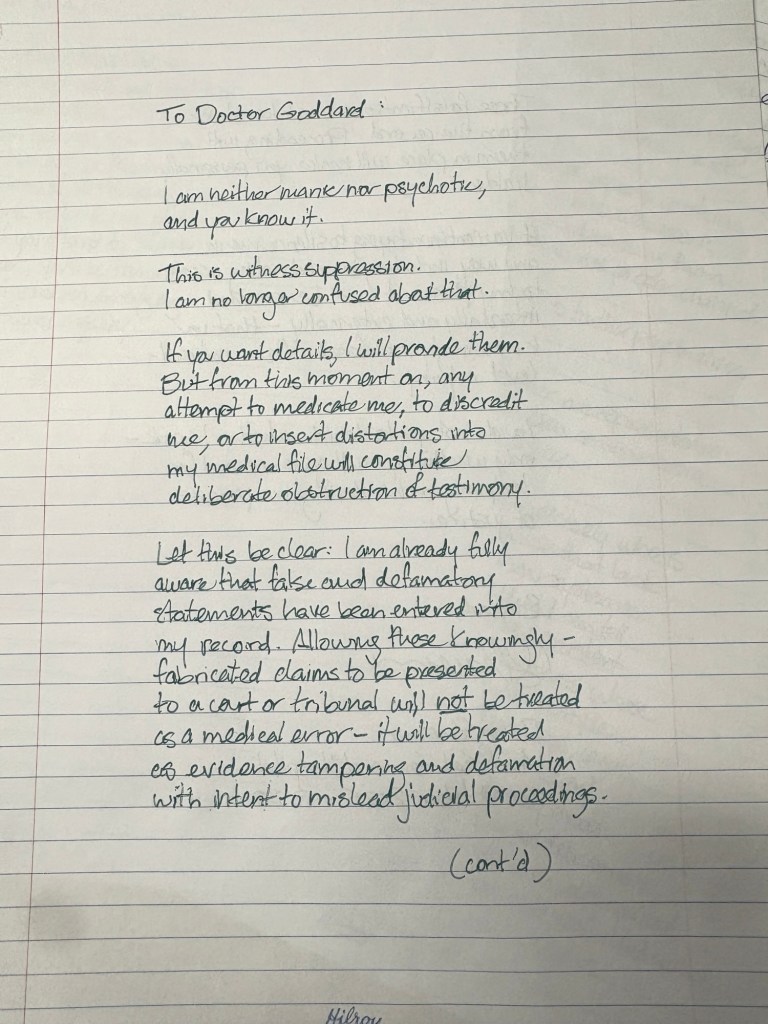 To Doctor Goddard :
I am neither manic nor psychotic,
and you know it.
This is witness suppression.
I am no longer confused about that.
If you want details, I will provide them.
But from this moment on, any
attempt to medicate me, to discredit
me, or to insert distortions into
my medical file will constitute
deliberate obstruction of testimony.
Let this be clear: I am already fully
aware that false and defamatory
statements have been entered into
my record. Allowing these knowingly-
fabricated claims to be presented
to a court or tribunal will not be treated
as a medical error - it will be treated
as evidence tampering and defamation
with intent to mislead judicial proceedings.
(cont'd)
Hilroy